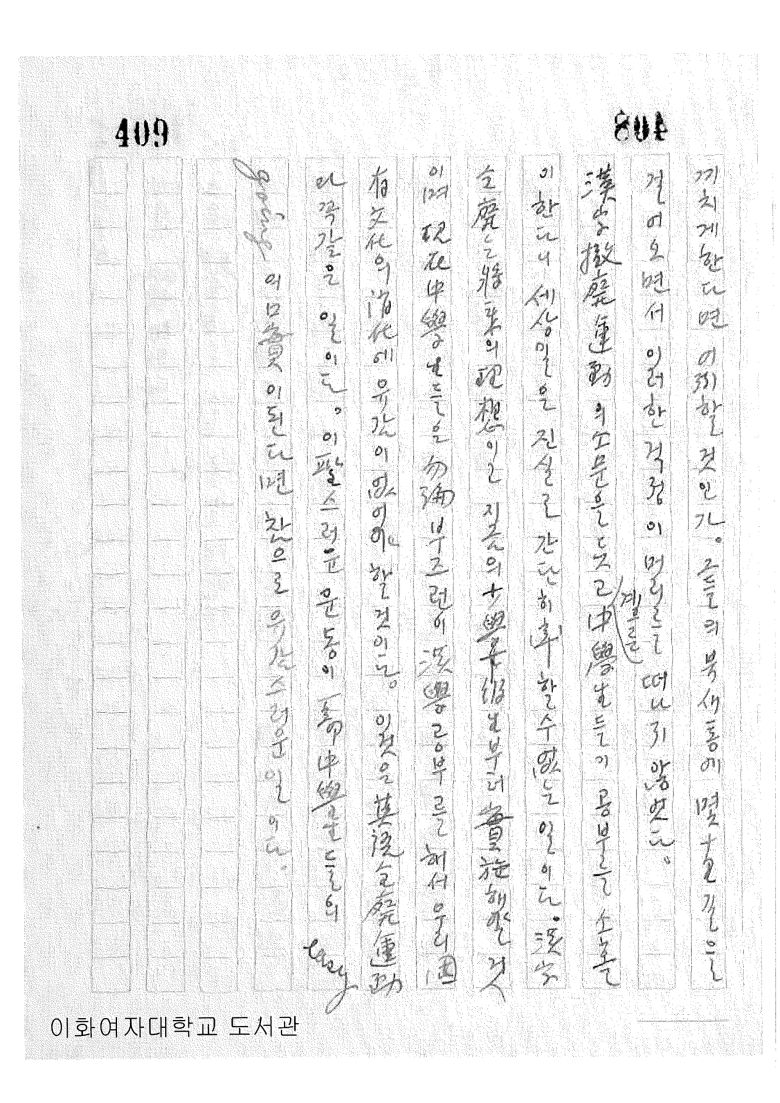 409
408
끼치게한다면 어찌할 것인가。그들의 북새통에 몇十里길을
걸어오면서 이러한 걱정이 머리를 떠나지 않었다。
漢字撤廢運動의 소문을 듯고 中學生들기 공부를 소홀
게을른
이 한다니 세상일은 진실로 간단히 할수 없는 일이다。漢字
全廢는 將來의 理想이고 지금의 學生부터 實施해야할 것
이며 現在中學生들은 勿論 부즈런이 漢學공부를 해서 우리 固
有文化의 消化에 유감이 없어야 할것이다。이것은 英語全廢運動
과 꼭같은 일이다。이 스러운 운동이 中學生들의 easy
going 의 口實이 된다면 참으로 유감스러운일이다。
이화여자대학교 도서관